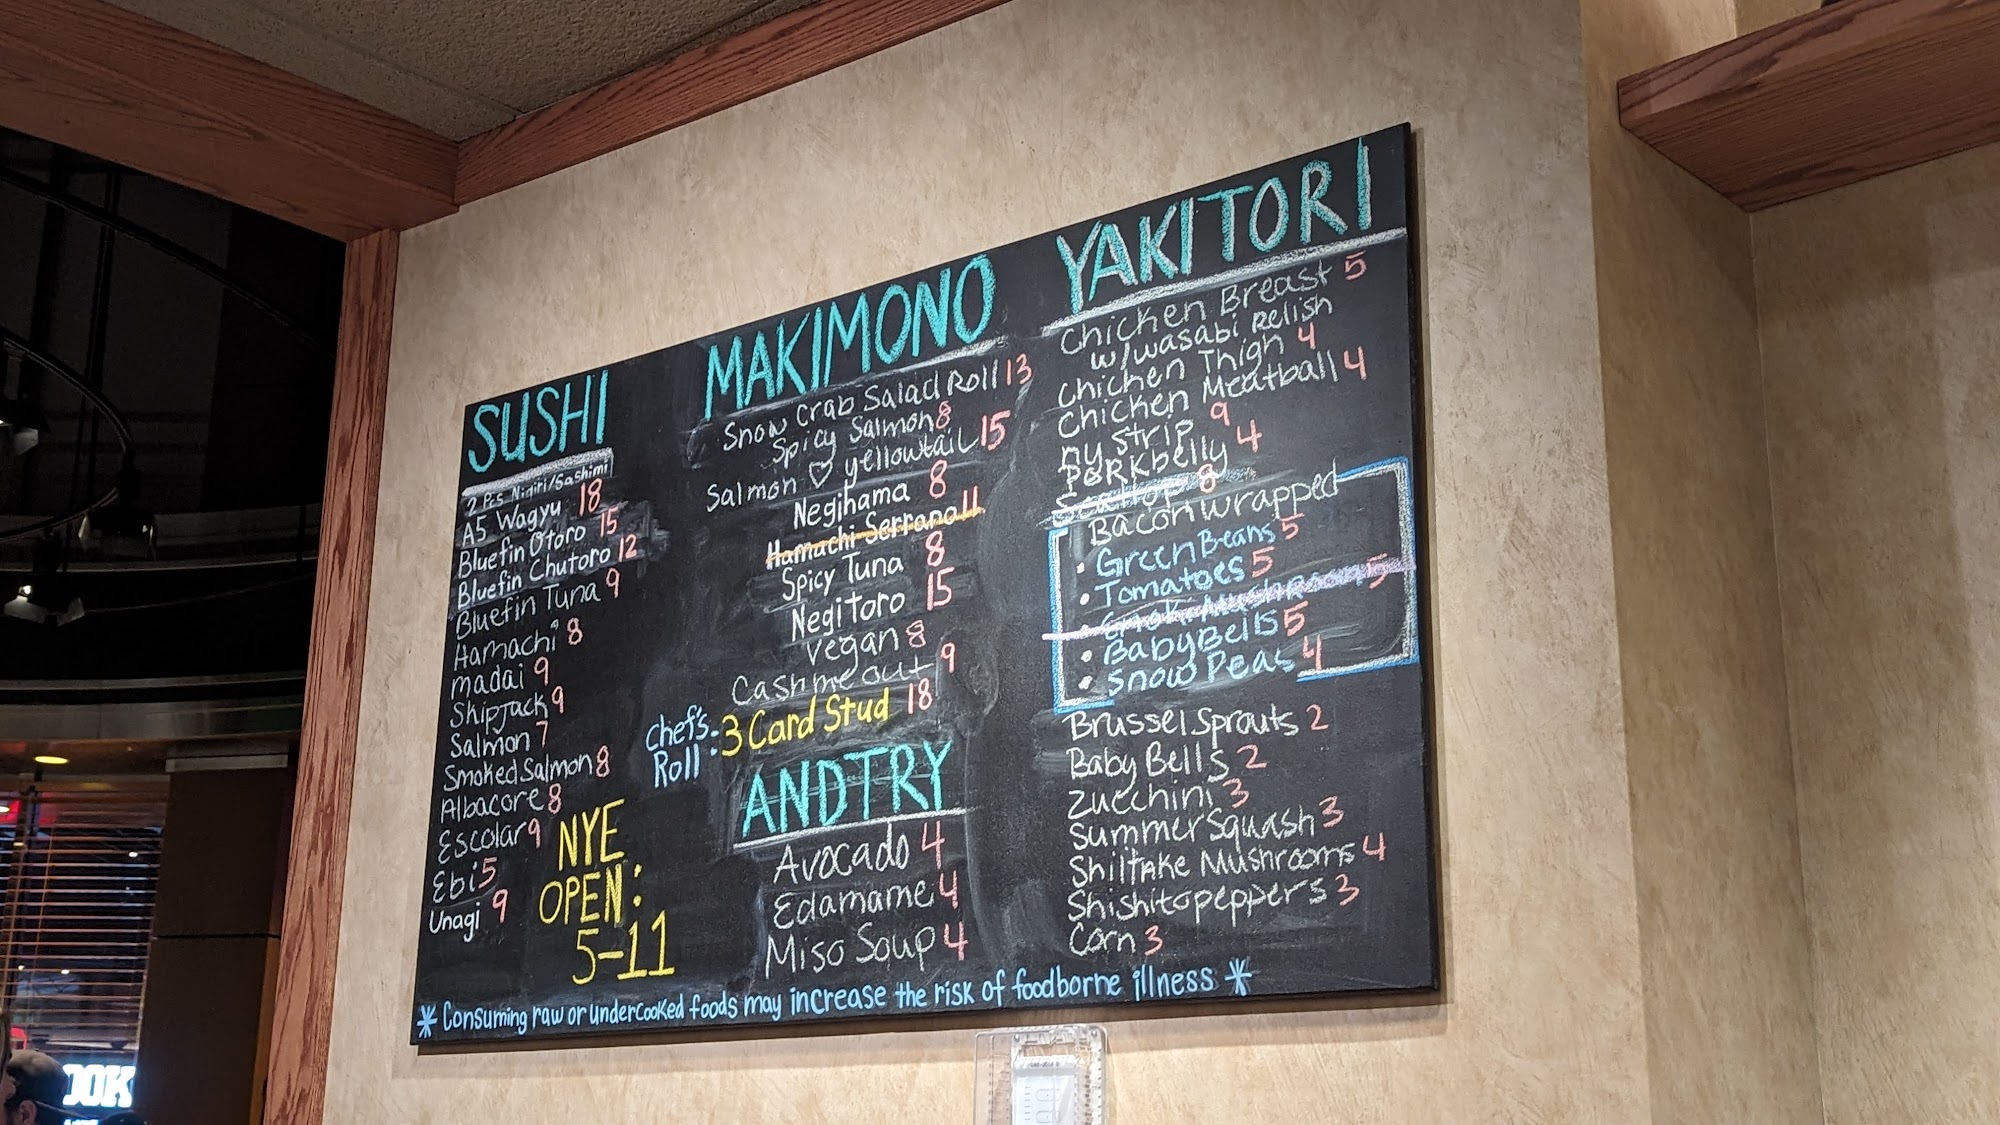 SUSHI
2 Pcs Nigiri/Sashimi
A5 Wagyu 18
Bluefin Otoro 15
Bluefin Chutoro 12
Bluefin Tuna 9
Hamachi 8
madai 9
Skipjack 9
Salmon 7
Smoked Salmon 8
Albacore 8
Escolar 9
Ebi 5
Unagi 9
NYE
OPEN:
5-11
MAKIMONO
Snow Crab Salad Roll 13
Spicy Salmon 8
Salmon ♡ yellowtail 15
Negihama 8
Hamachi Serrano 11
Spicy Tuna 8
Negitoro 15
Vegan 8
Cash me out 9
Chef's Roll: 3 Card Stud 18
ANDTRY
Avocado 4
Edamame 4
Miso Soup 4
YAKITORI
Chicken Breast 5
w/wasabi Relish
Chicken Thigh 4
Chicken Meatball 4
ny strip 9
Porkbelly 4
Scallop 8
Bacon wrapped
• Green Beans 5
• Tomatoes 5
• Enoki Mushroom 5
• Baby Bells 5
• Snow Peas 4
Brussel Sprouts 2
Baby Bells 2
Zucchini 3
Summer Squash 3
Shiitake Mushrooms 4
Shishito peppers 3
Corn 3
* Consuming raw or undercooked foods may increase the risk of foodborne illness *
OOK